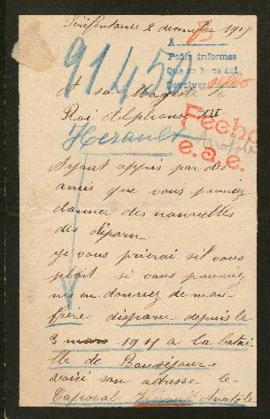 2 decembre 1915
A
Pedir informes
9145
A sa Majesté le
Roi Alphonse XIII
Herault
Fecho
e.a.e.
Ayant appris par des
amis que vous pouviez
donner des nouvelles
des disparu
je vous prierai sil vous
plait si vous pouviez
m en donner de mon
frère disparu depuis le
3 mars 1915 a la batai
lle de Beauséjour
voici son adresse le
Caporal Anatole